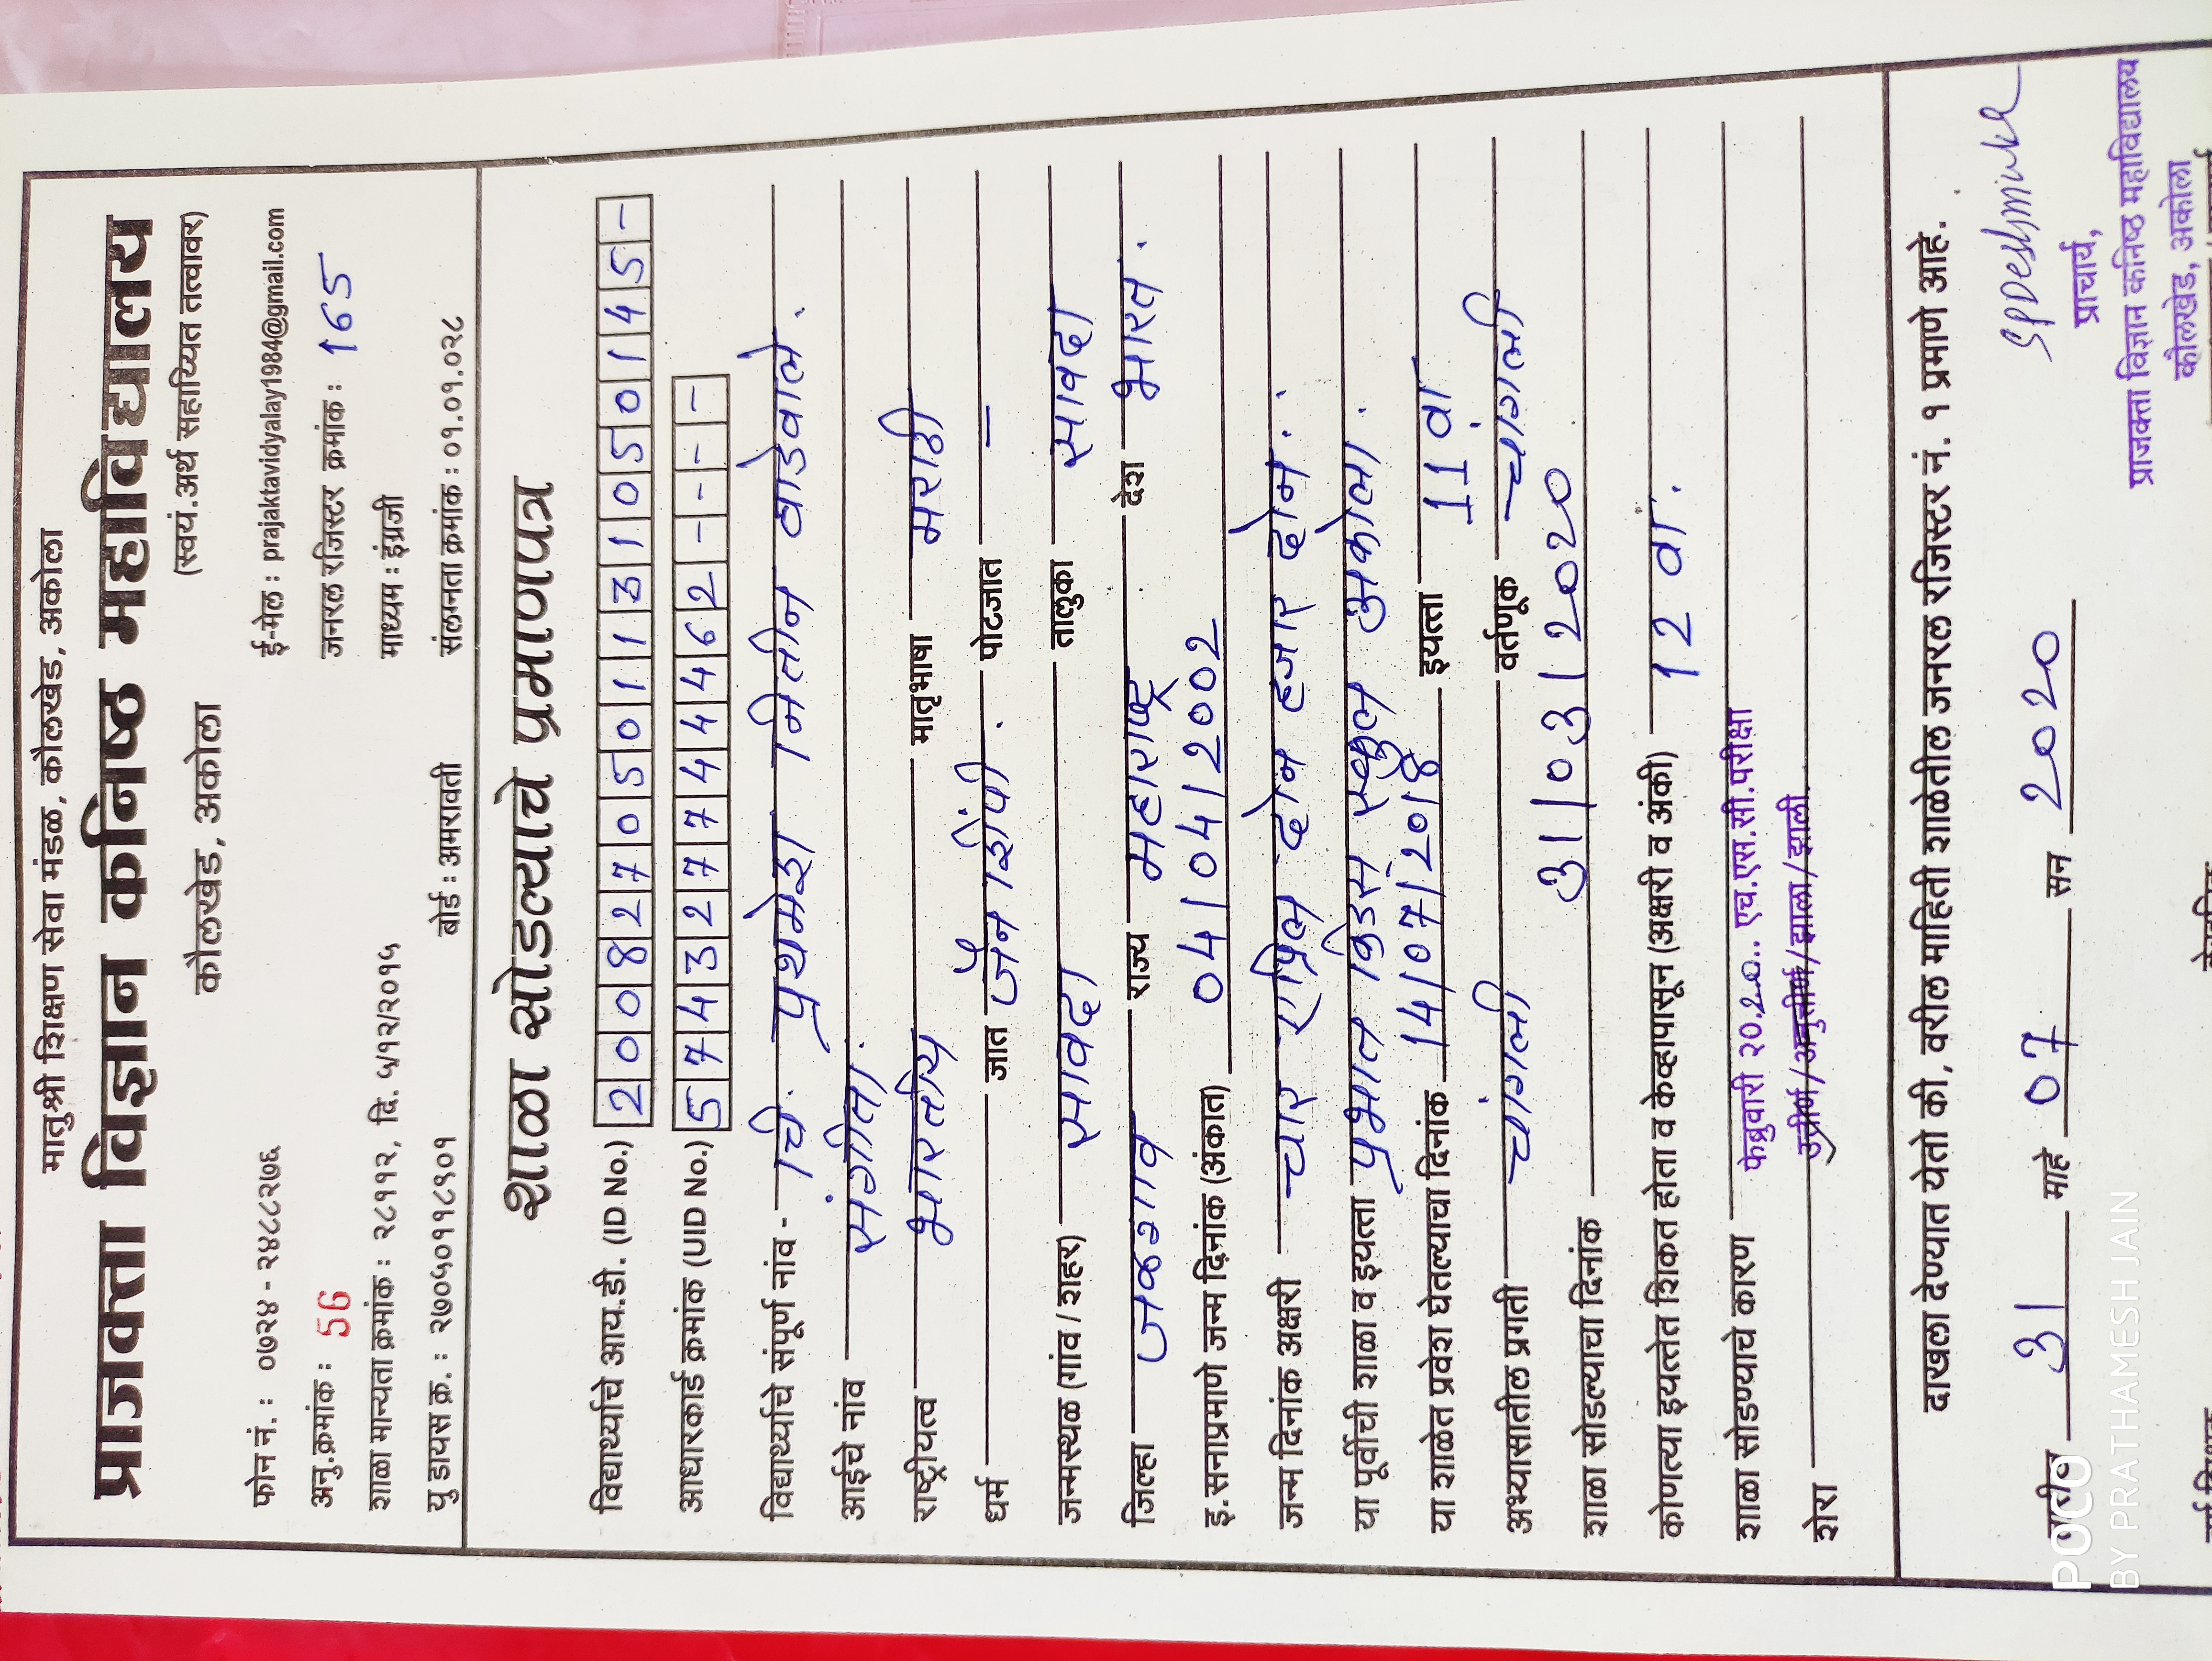 मातुश्री शिक्षण सेवा मंडळ, कौलखेड, अकोला
प्राजक्ता विज्ञान कनिष्ठ महाविद्यालय
कौलखेड, अकोला (स्वयं.अर्थ सहाय्यित तत्वावर)
फोन नं. : ०७२४ - २४८८२७६ ई-मेल : prajaktavidyalay1984@gmail.com
अनु.क्रमांक : 56 जनरल रजिस्टर क्रमांक : 165
शाळा मान्यता क्रमांक : २८११२, दि. ५/१२/२०१५ माध्यम : इंग्रजी
यु डायस क्र. : २७०५०११८१०१ बोर्ड : अमरावती संलग्नता क्रमांक : ०१.०१.०२८
शाळा सोडल्याचे प्रमाणपत्र
विद्यार्थ्याचे आय.डी. (ID No.) 2008270501131050145-
आधारकार्ड क्रमांक (UID No.) 574327744462----
विद्यार्थ्याचे संपूर्ण नांव - चि. प्रथमेश नितीन वाडेवाले.
आईचे नांव संगीता.
राष्ट्रीयत्व भारतीय मातृभाषा मराठी
धर्म जात जैन शिंपी. पोटजात —
जन्मस्थळ (गांव / शहर) सावदा तालुका सावदा
जिल्हा जळगाव राज्य महाराष्ट्र देश भारत.
इ.सनाप्रमाणे जन्म दिनांक (अंकात) 04/04/2002
जन्म दिनांक अक्षरी चार एप्रिल दोन हजार दोन..
या पूर्वीची शाळा व इयत्ता प्रभात किडस स्कुल अकोला.
या शाळेत प्रवेश घेतल्याचा दिनांक 14/07/2018 इयत्ता 11 वा
अभ्यासातील प्रगती चांगली वर्तणूक चांगली
शाळा सोडल्याचा दिनांक 31/03/2020
कोणत्या इयत्तेत शिकत होता व केव्हापासून (अक्षरी व अंकी) 12 वा.
शाळा सोडण्याचे कारण फेब्रुवारी २०.२०.. एच.एस.सी.परीक्षा
शेरा उत्तीर्ण/अनुत्तीर्ण/झाला/झाली.
दाखला देण्यात येतो की, वरील माहिती शाळेतील जनरल रजिस्टर नं. १ प्रमाणे आहे.
तारीख 31 माहे 07 सन 2020
प्राचार्य,
प्राजक्ता विज्ञान कनिष्ठ महाविद्यालय
कौलखेड, अकोला
POCO
BY PRATHAMESH JAIN